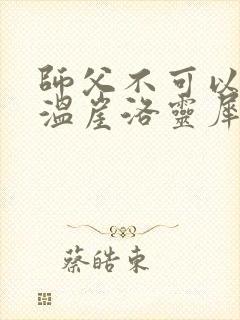 師父不可以
溫崖洛靈犀
蔡皓東